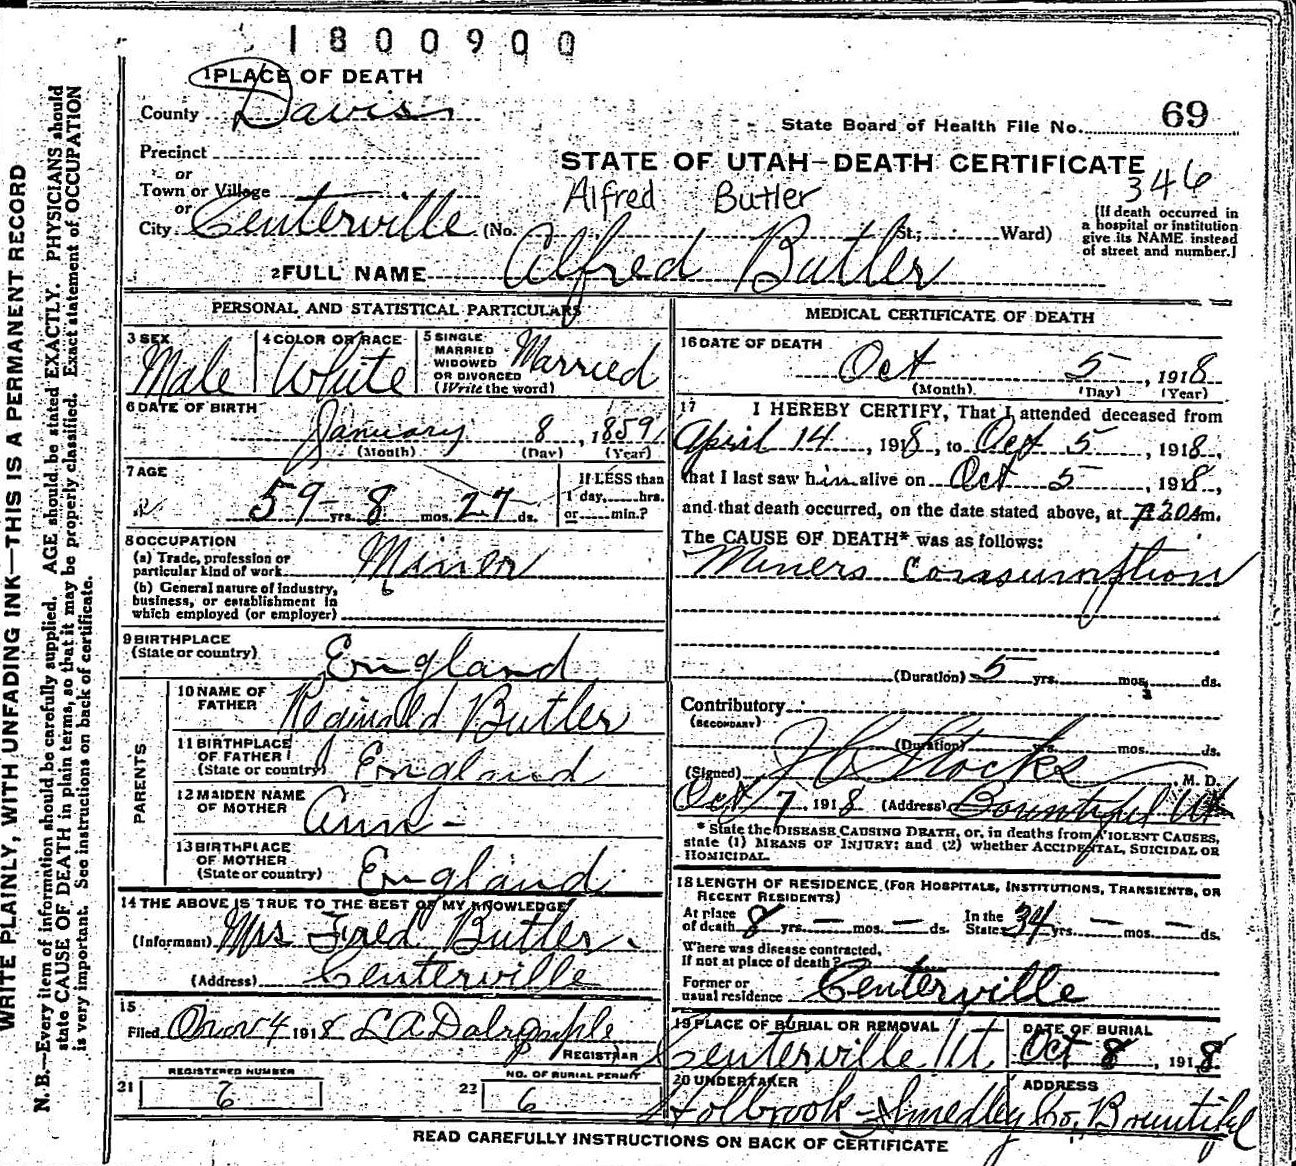 1800900
1 PLACE OF DEATH
County Davis
State Board of Health File No. 69
Precinct
or
STATE OF UTAH—DEATH CERTIFICATE
Town or Village
Alfred Butler
346
or
City Centerville (No. St.; Ward)
[If death occurred in
a hospital or institution
give its NAME instead
of street and number.]
2 FULL NAME Alfred Butler
PERSONAL AND STATISTICAL PARTICULARS
3 SEX Male
4 COLOR OR RACE White
5 SINGLE
MARRIED
WIDOWED
OR DIVORCED
(Write the word) Married
6 DATE OF BIRTH
January 8, 1859
(Month) (Day) (Year)
7 AGE
59 yrs. 8 mos. 27 ds.
If LESS than
1 day, hrs.
or min.?
8 OCCUPATION
(a) Trade, profession or
particular kind of work Miner
(b) General nature of industry,
business, or establishment in
which employed (or employer)
9 BIRTHPLACE
(State or country) England
PARENTS
10 NAME OF
FATHER Reginald Butler
11 BIRTHPLACE
OF FATHER
(State or country) England
12 MAIDEN NAME
OF MOTHER Ann -
13 BIRTHPLACE
OF MOTHER
(State or country) England
14 THE ABOVE IS TRUE TO THE BEST OF MY KNOWLEDGE
(Informant) Mrs Fred Butler.
(Address) Centerville
15
Filed Nov 4 1918 L A Dalrymple
REGISTRAR
21 REGISTERED NUMBER
6
22 NO. OF BURIAL PERMIT
6
MEDICAL CERTIFICATE OF DEATH
16 DATE OF DEATH
Oct 5, 1918
(Month) (Day) (Year)
17 I HEREBY CERTIFY, That I attended deceased from
April 14, 1918, to Oct 5, 1918,
that I last saw him alive on Oct 5, 1918,
and that death occurred, on the date stated above, at 7:20 A m.
The CAUSE OF DEATH* was as follows:
Miners Consumption
(Duration) 5 yrs. mos. ds.
Contributory
(SECONDARY)
(Duration) yrs. mos. ds.
(Signed) Stocks, M. D.
Oct 7, 1918 (Address) Bountiful Ut
* State the DISEASE CAUSING DEATH, or, in deaths from VIOLENT CAUSES,
state (1) MEANS OF INJURY; and (2) whether ACCIDENTAL, SUICIDAL OR
HOMICIDAL.
18 LENGTH OF RESIDENCE (FOR HOSPITALS, INSTITUTIONS, TRANSIENTS, OR
RECENT RESIDENTS)
At place
of death 8 yrs. — mos. — ds.
In the
State 34 yrs. — mos. — ds.
Where was disease contracted,
If not at place of death?
Former or
usual residence Centerville
19 PLACE OF BURIAL OR REMOVAL
Centerville Ut
DATE OF BURIAL
Oct 8, 1918
20 UNDERTAKER
Holbrook-Smedley Co,
ADDRESS
Bountiful
READ CAREFULLY INSTRUCTIONS ON BACK OF CERTIFICATE
WRITE PLAINLY, WITH UNFADING INK—THIS IS A PERMANENT RECORD
N. B.—Every item of information should be carefully supplied. AGE should be stated EXACTLY. PHYSICIANS should
state CAUSE OF DEATH in plain terms, so that it may be properly classified. Exact statement of OCCUPATION
is very important. See instructions on back of certificate.